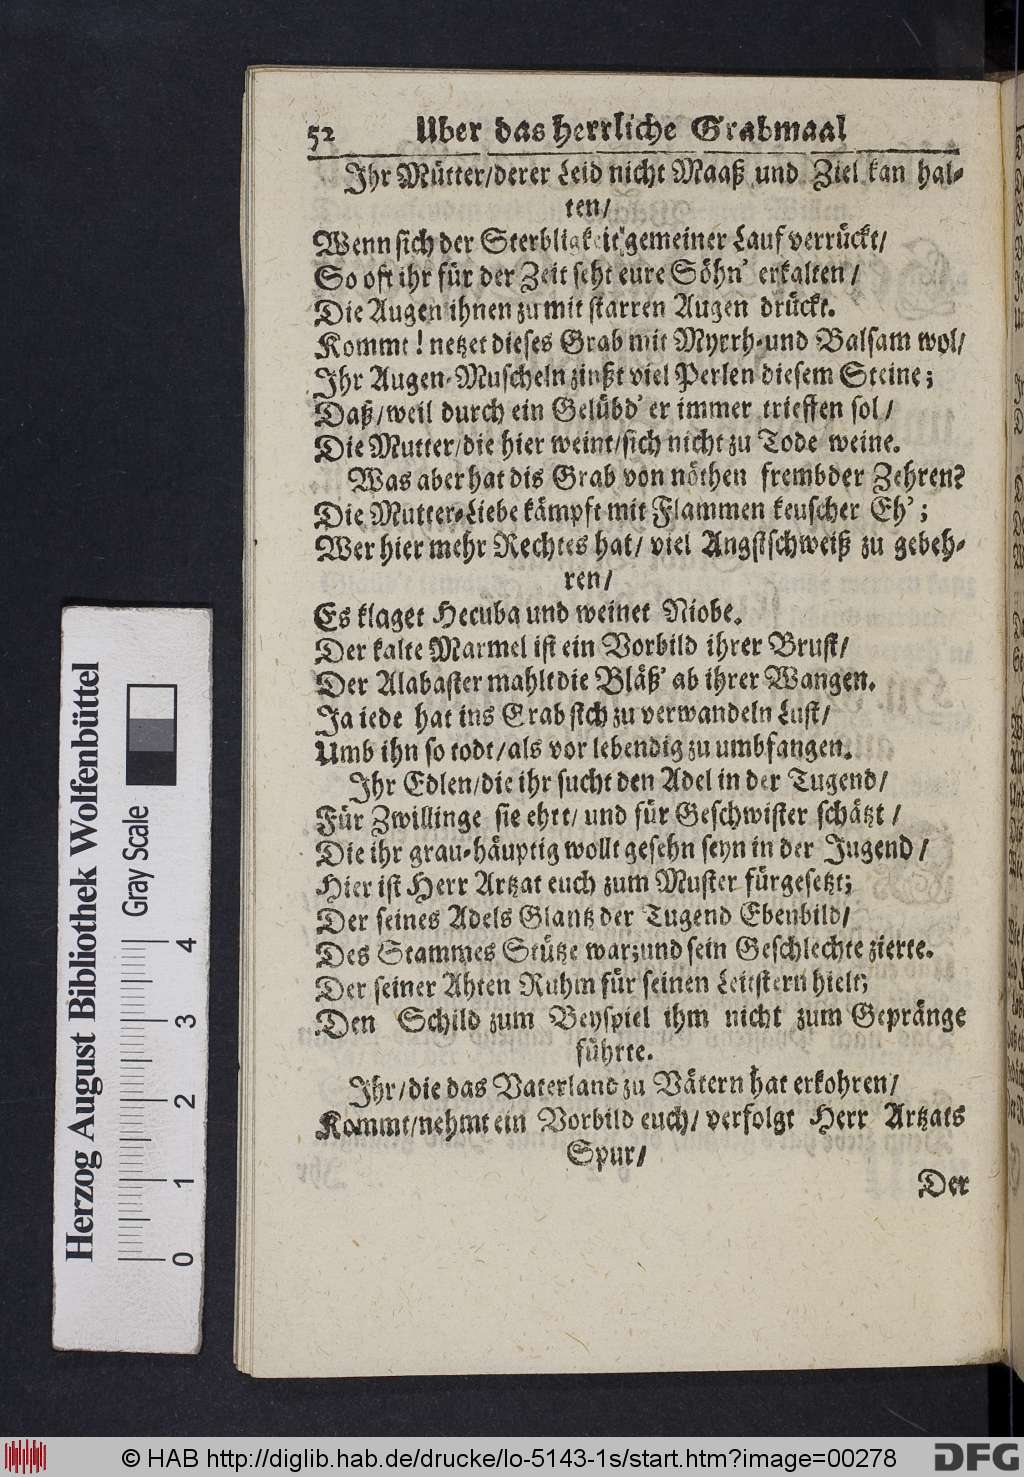 52 Uber das herrliche Grabmaal
Ihr Mütter/derer Leid nicht Maaß und Ziel kan hal-
ten/
Wenn sich der Sterbligkeit gemeiner Lauf verrückt/
So oft ihr für der Zeit seht eure Söhn' erkalten/
Die Augen ihnen zu mit starren Augen drückt.
Kommt! netzet dieses Grab mit Myrrh-und Balsam wol/
Ihr Augen-Muscheln zinßt viel Perlen diesem Steine;
Daß/weil durch ein Gelübd' er immer trieffen sol/
Die Mutter/die hier weint/sich nicht zu Tode weine.
Was aber hat dis Grab von nöthen frembder Zehren?
Die Mutter-Liebe kämpft mit Flammen keuscher Eh';
Wer hier mehr Rechtes hat/ viel Angstschweiß zu gebeh-
ren/
Es klaget Hecuba und weinet Niobe.
Der kalte Marmel ist ein Vorbild ihrer Brust/
Der Alabaster mahlt die Bläß' ab ihrer Wangen.
Ja iede hat ins Grab sich zu verwandeln Lust/
Umb ihn so todt/als vor lebendig zu umbfangen.
Ihr Edlen/die ihr sucht den Adel in der Tugend/
Für Zwillinge sie ehrt/ und für Geschwister schätzt/
Die ihr grau-häuptig wollt gesehn seyn in der Jugend/
Hier ist Herr Artzat euch zum Muster fürgesetzt;
Der seines Adels Glantz der Tugend Ebenbild/
Des Stammes Stütze war; und sein Geschlechte zierte.
Der seiner Ahten Ruhm für seinen Leitstern hielt;
Den Schild zum Beyspiel ihm nicht zum Gepränge
führte.
Ihr/die das Vaterland zu Vätern hat erkohren/
Kommt/nehmt ein Vorbild euch/ verfolgt Herr Artzats
Spur/
Der
Herzog August Bibliothek Wolfenbüttel
Gray Scale
0 1 2 3 4
© HAB http://diglib.hab.de/drucke/lo-5143-1s/start.htm?image=00278
DFG